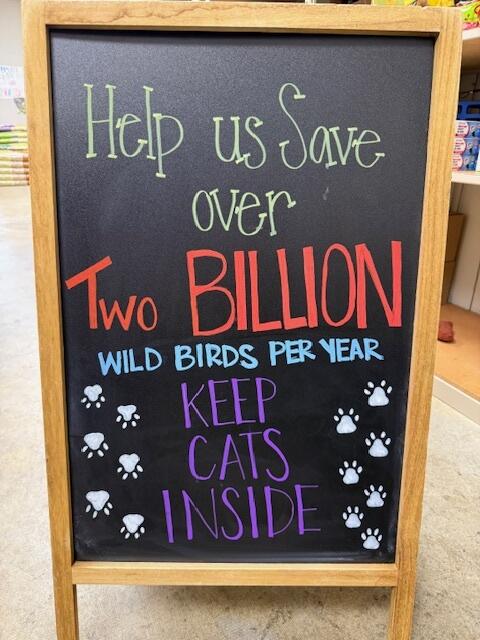 Help us Save
over
Two BILLION
WILD BIRDS PER YEAR
KEEP
CATS
INSIDE